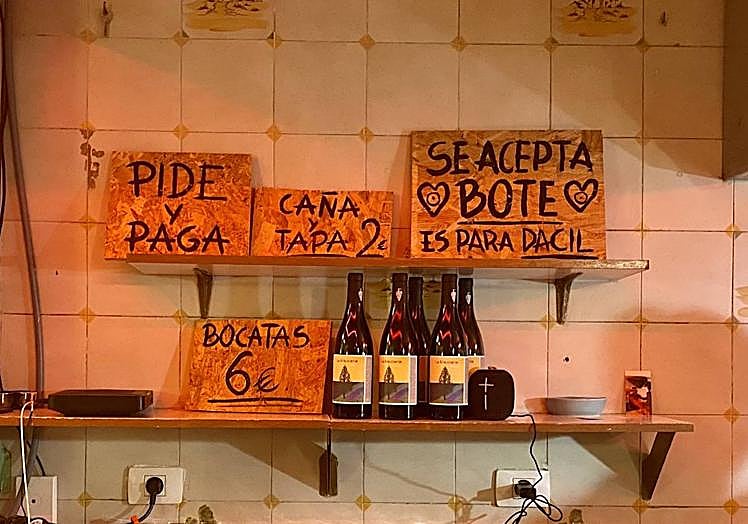 PIDE
Y
PAGA
CAÑA
Y
TAPA 2€
SE ACEPTA
BOTE
ES PARA DACIL
BOCATAS
6€